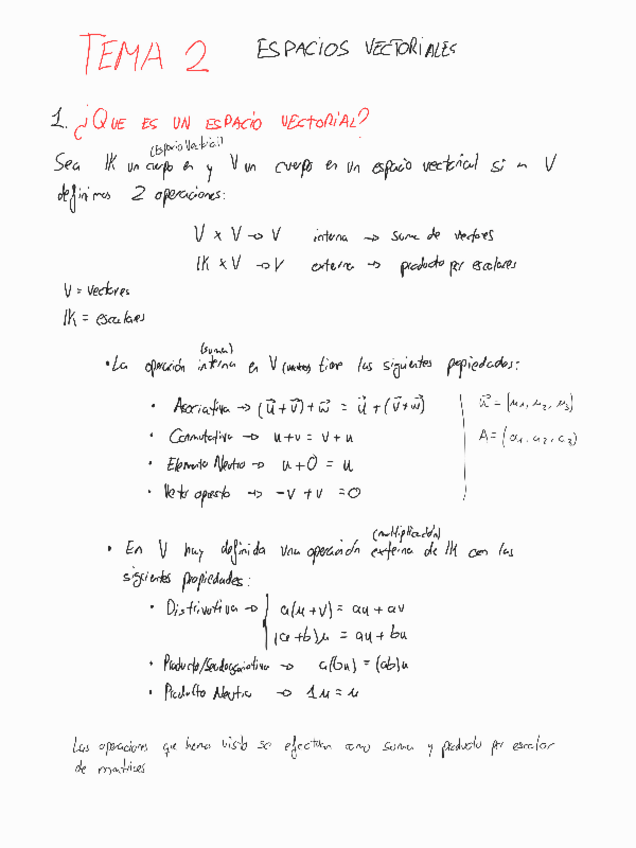 TEMA 2 ESPACIOS VECTORIALES
1. ¿QUE ES UN ESPACIO VECTORIAL?
(Espacio Vectorial)
Sea IK un cuerpo en y V un cuerpo en un espacio vectorial si en V
definimos 2 operaciones:
V x V → V interna → suma de vectores
IK x V → V externa → producto por escalares
V = vectores
IK = escalares
(suma)
• La operación interna en V (vectores) tiene las siguientes propiedades:
• Asociativa → (u⃗ + v⃗) + w⃗ = u⃗ + (v⃗ + w⃗)
u⃗ = (u1, u2, u3)
• Conmutativa → u + v = v + u
A = (a1, a2, a3)
• Elemento Neutro → u + 0 = u
• Vector opuesto → -v + v = 0
(multiplicación)
• En V hay definida una operación externa de IK con las
siguientes propiedades:
• Distributiva → a(u + v) = au + av
(a + b)u = au + bu
• Producto/Seudoasociativa → a(bu) = (ab)u
• Producto Neutro → 1u = u
Las operaciones que hemos visto se efectúan como suma y producto por escalar
de matrices